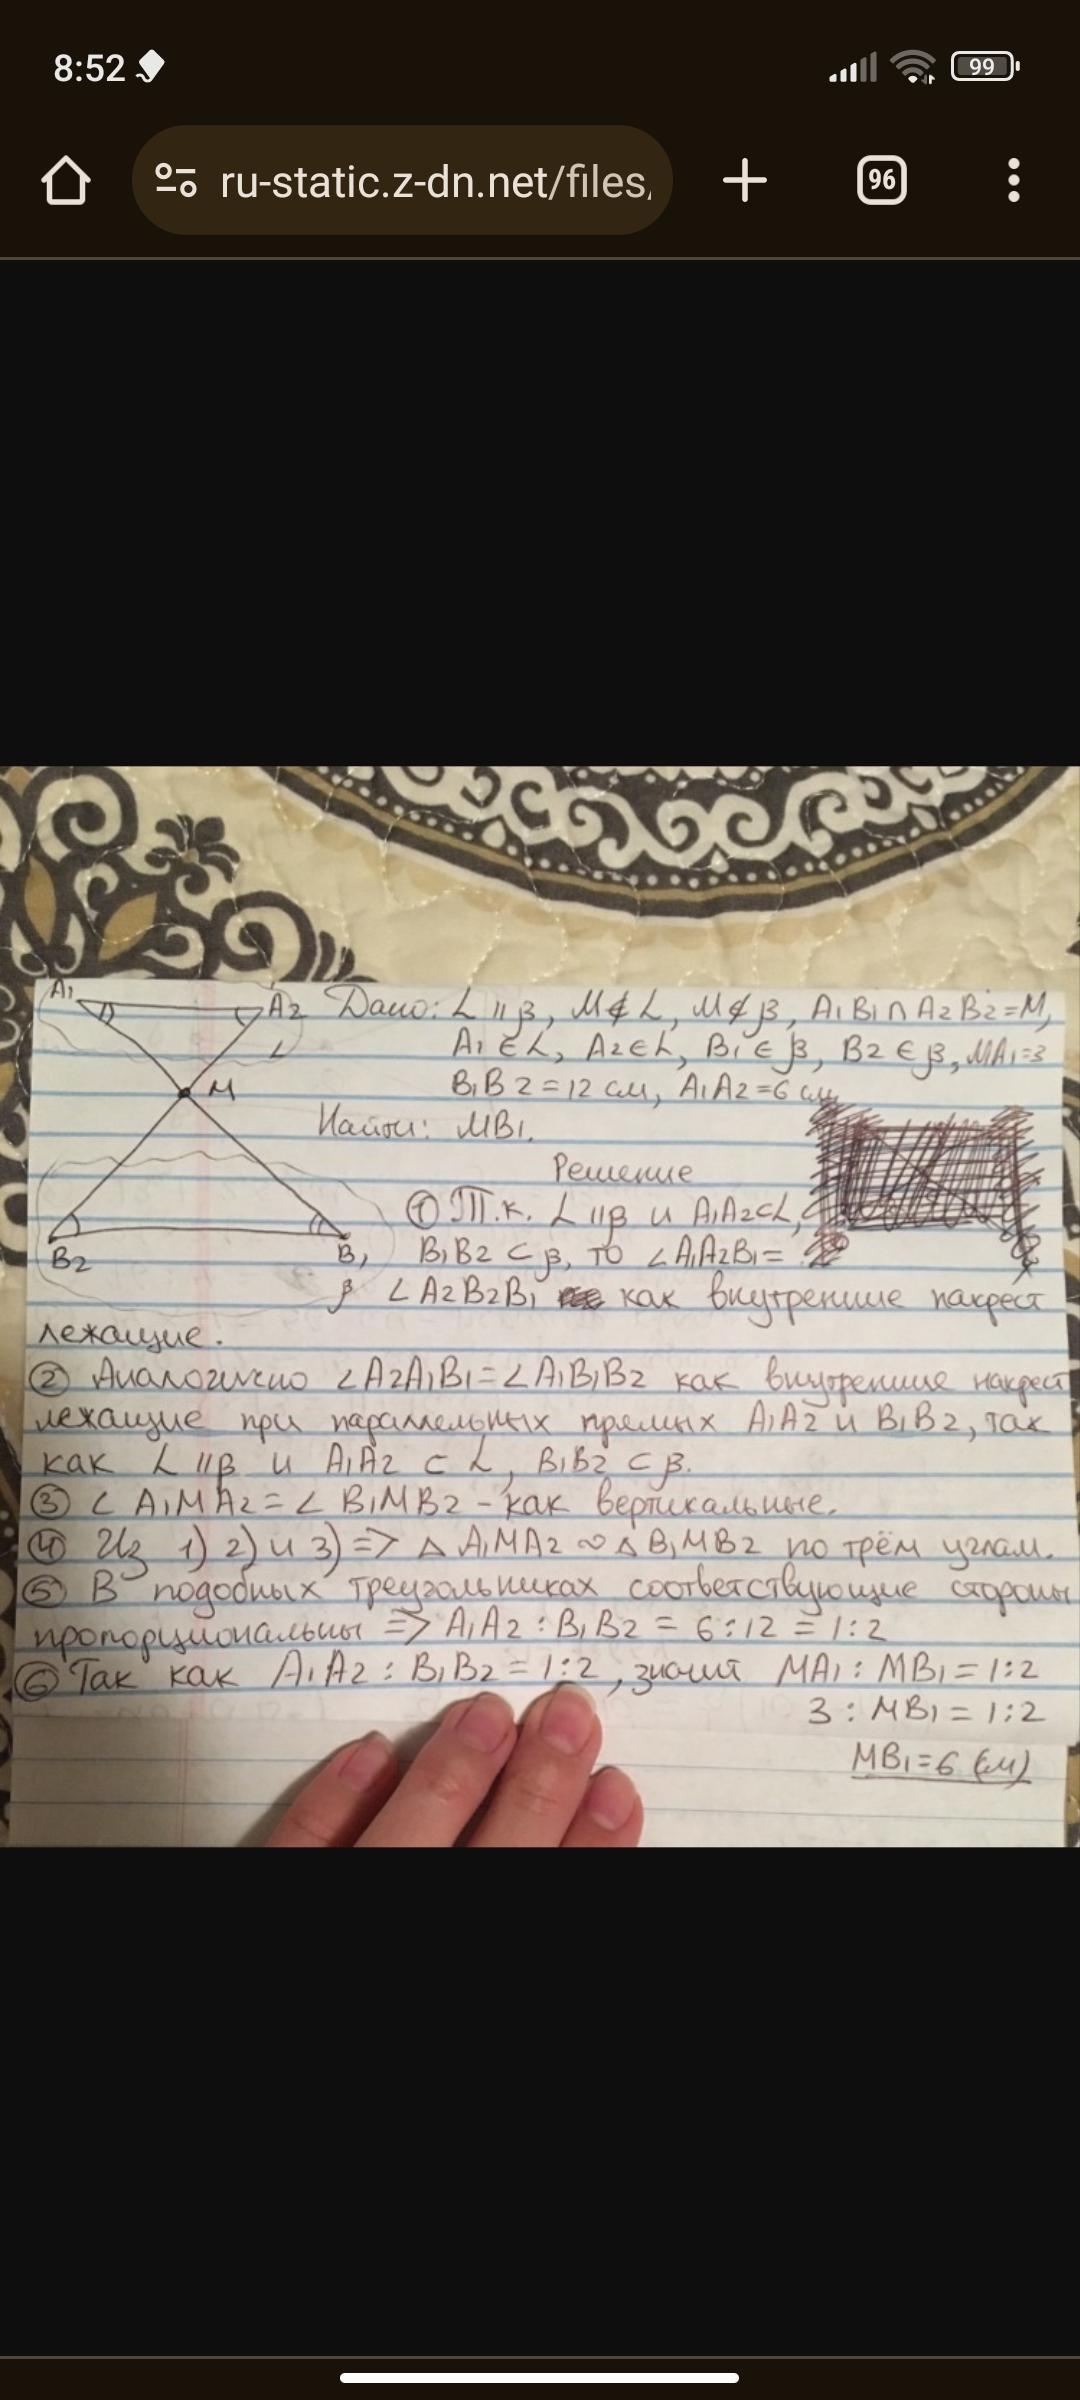 8:52
99
ru-static.z-dn.net/files,
96
A1
A2 Дано: L || β, M ∉ L, M ∉ β, A1B1 ∩ A2B2=M,
L A1 ∈ L, A2 ∈ L, B1 ∈ β, B2 ∈ β, MA1=3
M B1B2 = 12 см, A1A2=6 см
Найти: MB1.
Решение
① Т.к. L || β и A1A2⊂L,
B2 B1 B1B2 ⊂ β, то ∠A1A2B1=
β ∠A2B2B1 как внутренние накрест
лежащие.
② Аналогично ∠A2A1B1=∠A1B1B2 как внутренние накрест
лежащие при параллельных прямых A1A2 и B1B2, так
как L || β и A1A2 ⊂ L, B1B2 ⊂ β.
③ ∠ A1MA2 = ∠ B1MB2 - как вертикальные.
④ Из 1) 2) и 3) => △ A1MA2 ∾ △ B1MB2 по трём углам.
⑤ В подобных треугольниках соответствующие стороны
пропорциональны => A1A2 : B1B2 = 6:12 = 1:2
⑥ Так как A1A2 : B1B2 = 1:2, значит MA1 : MB1 = 1:2
3 : MB1 = 1:2
MB1=6 (см)